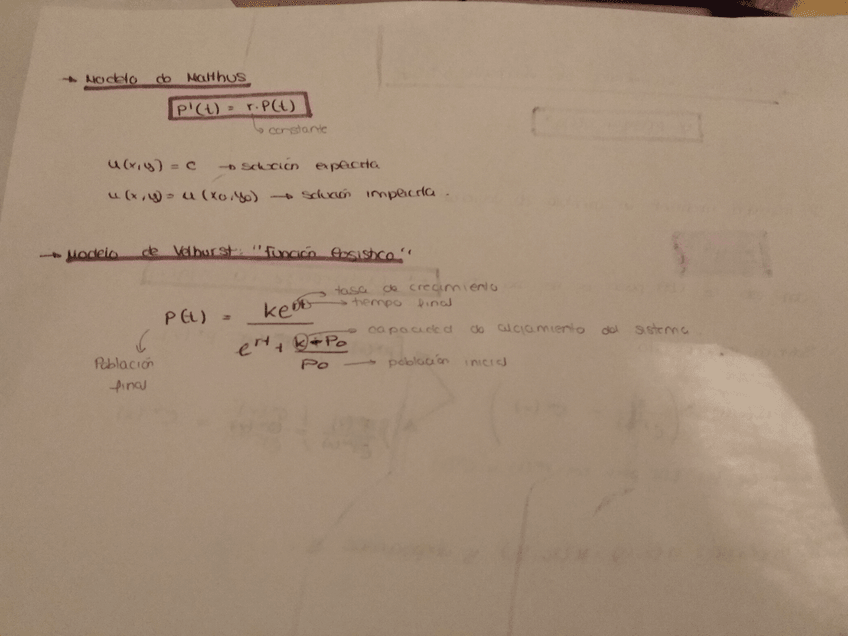 → Modelo de Malthus
P'(t) = r.P(t)
constante
u(x,y) = c → solución explícita
u(x,y) = u(x0,y0) → solución implícita.
→ Modelo de Velhurst: "Función logística"
tasa de crecimiento
tiempo final
P(t) = ke^rt / (e^rt + (k-P0)/P0)
capacidad de alojamiento del sistema
población inicial
Población
final